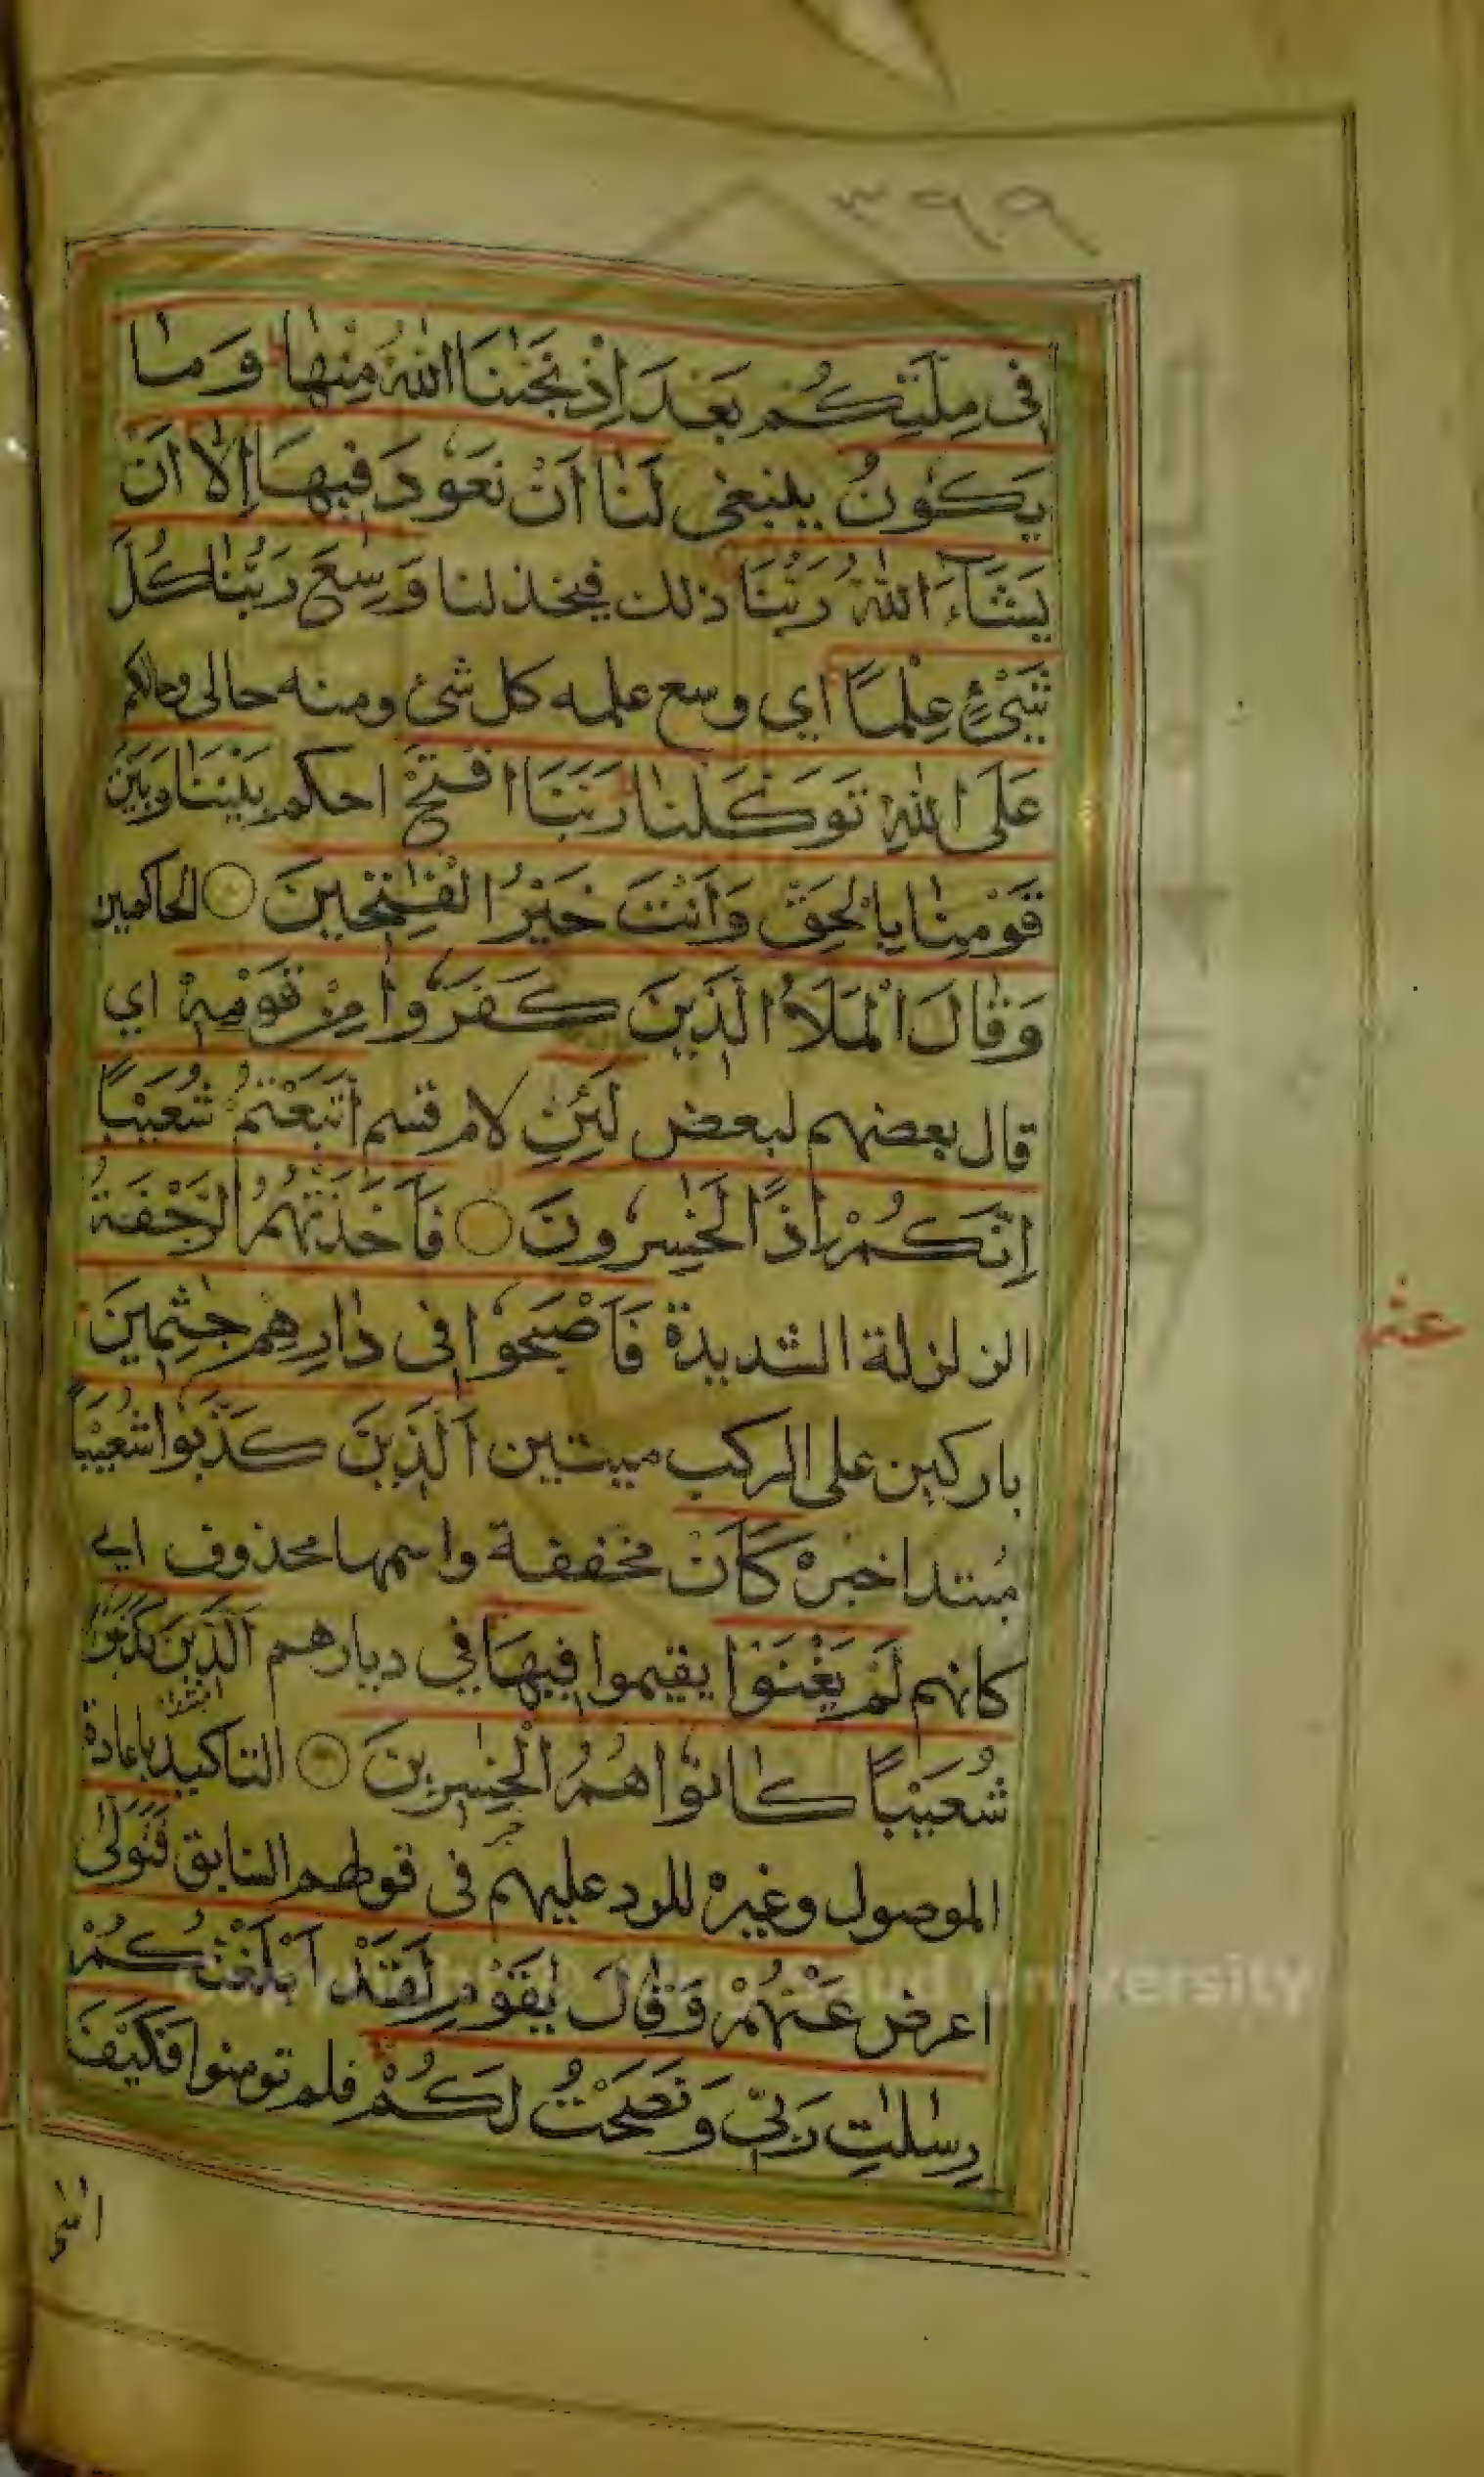 ٣٩٩
فِى مِلَّتِكُمْ بَعْدَ اِذْ نَجّٰىنَا اللّٰهُ مِنْهَا وَمَا
يَكُوْنُ ينبغى لَنَا اَنْ نَعُوْدَ فِيْهَا اِلَّا اَنْ
يَشَآءَ اللّٰهُ رَبُّنَا ذلك فيخذلنا وَسِعَ رَبُّنَا كُلَّ
شَىْءٍ عِلْمًا اي وسع علمه كل شئ ومنه حالى وحالكم
عَلَى اللّٰهِ تَوَكَّلْنَا رَبَّنَا افْتَحْ احكم بَيْنَنَا وَبَيْنَ
قَوْمِنَا بِالْحَقِّ وَاَنْتَ خَيْرُ الْفٰتِحِيْنَ الحاكمين
وَقَالَ الْمَلَاُ الَّذِيْنَ كَفَرُوْا مِنْ قَوْمِهٖ اي
قال بعضهم لبعض لَئِنِ لام قسم اتَّبَعْتُمْ شُعَيْبًا
اِنَّكُمْ اِذًا لَّخٰسِرُوْنَ فَاَخَذَتْهُمُ الرَّجْفَةُ
الزلزلة الشديدة فَاَصْبَحُوْا فِى دَارِهِمْ جٰثِمِيْنَ
باركين على الركب ميتين اَلَّذِيْنَ كَذَّبُوْا شُعَيْبًا
مبتدا خبره كَاَنْ مخففة واسمها محذوف اي
كانهم لَمْ يَغْنَوْا يقيموا فِيْهَا في ديارهم اَلَّذِيْنَ كَذَّبُوْا
شُعَيْبًا كَانُوْا هُمُ الْخٰسِرِيْنَ التاكيد باعادة
الموصول وغيره للرد عليهم فى قولهم السابق فَتَوَلّٰى
اعرض عَنْهُمْ وَقَالَ يٰقَوْمِ لَقَدْ اَبْلَغْتُكُمْ
رِسٰلٰتِ رَبِّىْ وَنَصَحْتُ لَكُمْ فلم تومنوا فَكَيْفَ
King Saud University